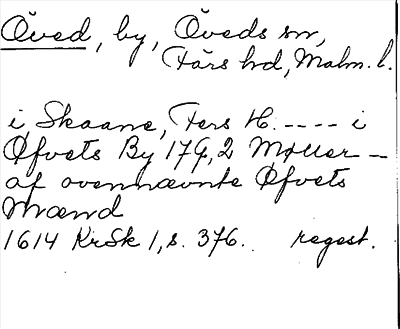 Öved, by, Öveds sn,
Färs hd, Malm. l.
i Skaane, Fers H. ---- i
Øfvets By 17 G, 2 Møller –
af ovennævnte Øfvets
Mænd
1614 KrSk 1, s. 376. regest.